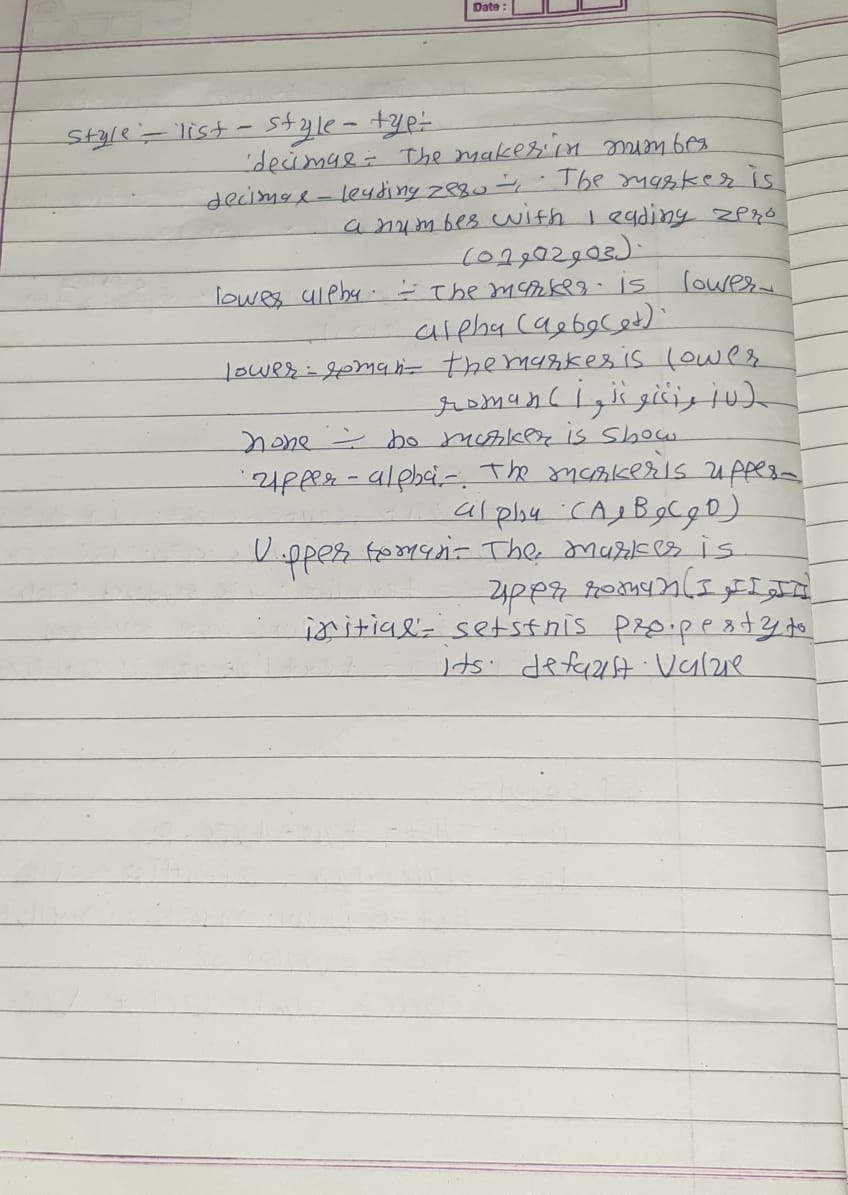 Date :
style :- list - style - type :-
decimal :- The maker in number
decimal - leading zero :- . The marker is
a number with leading zero
(01,02,03).
lower alpha . :- The marker . is lower -
alpha (a,b,c,d).
lower - roman :- the marker is lower
roman ( i, ii, iii, iv).
none :- no marker is show
upper - alpha :- The marker is upper -
alpha (A,B,C,D)
Upper roman :- The marker is
upper roman (I, II, III
initial :- sets this property to
its . default . value